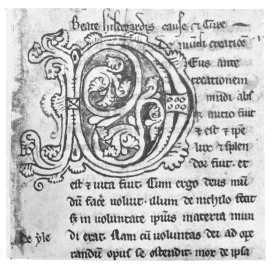 Beate hildegardis cause et Cure
De mundi creatione
DEus ante
creationem
mundi absq
initio fuit
et est et ipse
lux et splen
dor fuit. et
est et vita fuit. Cum ergo deus mun
dum facere voluit. illum de nichilo fecit
s in voluntate ipsius materia mun
di erat. Nam cum voluntas dei ad ope
De yle
randum opus se ostendit. mox de ipsa